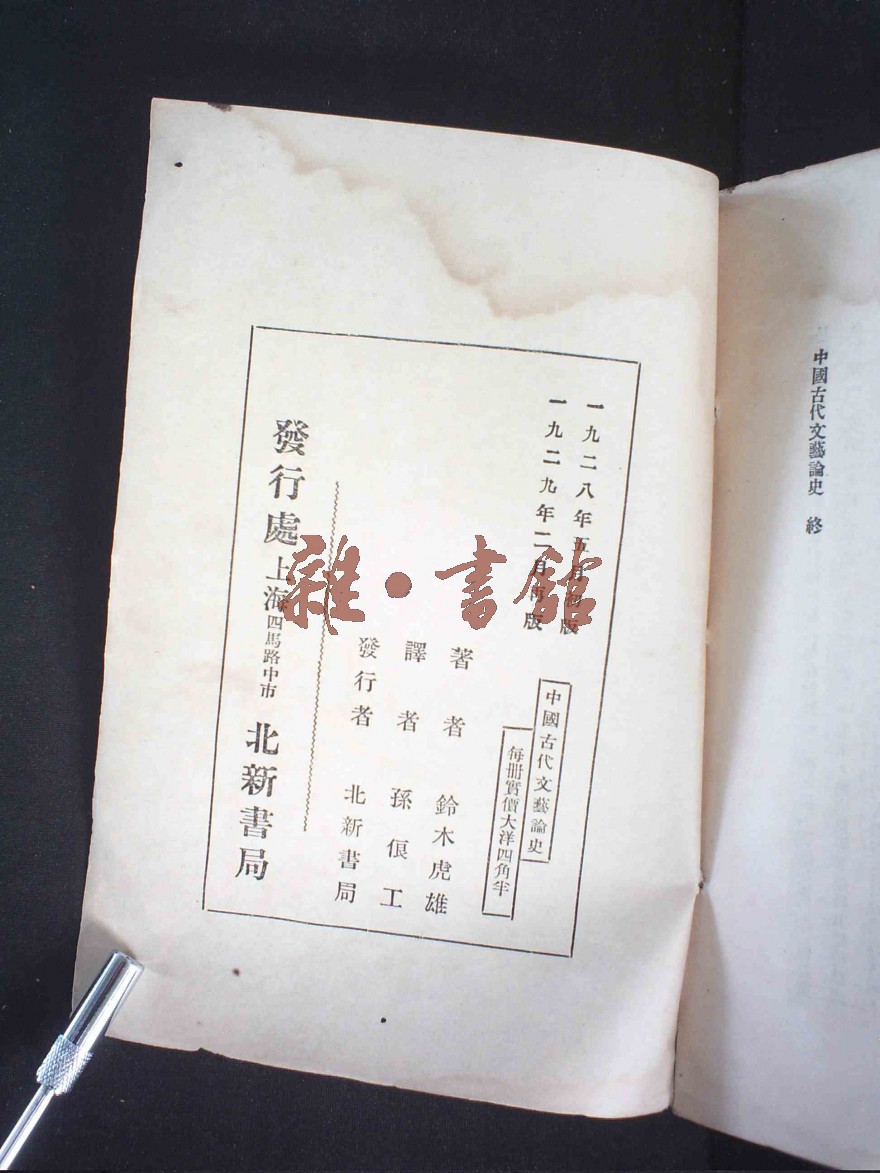 中國古代文藝論史 終
一九二八年五月初版
一九二九年二月再版
中國古代文藝論史
每册實價大洋四角半
著者 鈴木虎雄
譯者 孫俍工
發行者 北新書局
發行處 上海四馬路中市 北新書局
雜·書館